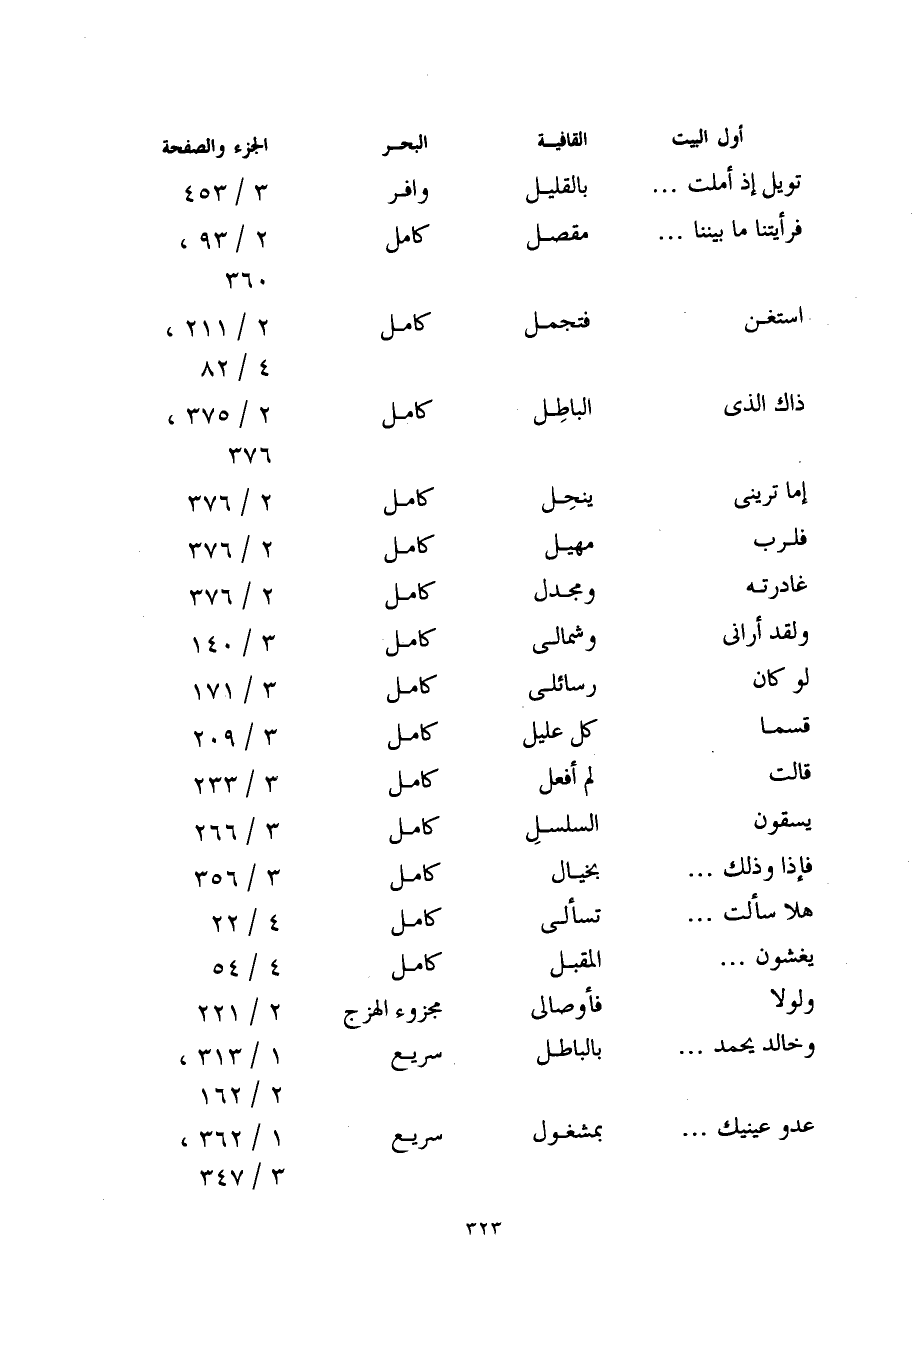 أول البيت القافية البحر الجزء والصفحة
تويل إذ أملت ... بالقليل وافر ٣ / ٤٥٣
فرأيتنا ما بيننا ... مقصل كامل ٢ / ٩٣ ،
٣٦٠
استغن فتجمل كامل ٢ / ٢١١ ،
٤ / ٨٢
ذاك الذى الباطِل كامل ٢ / ٣٧٥ ،
٣٧٦
إما ترينى ينجِل كامل ٢ / ٣٧٦
فلرب مهيل كامل ٢ / ٣٧٦
غادرته ومجدل كامل ٢ / ٣٧٦
ولقد أرانى وشمالى كامل ٣ / ١٤٠
لو كان رسائلى كامل ٣ / ١٧١
قسما كل عليل كامل ٣ / ٢٠٩
قالت لم أفعل كامل ٣ / ٢٣٣
يسقون السلسلِ كامل ٣ / ٢٦٦
فإذا وذلك ... بخيال كامل ٣ / ٣٥٦
هلا سألت ... تسألى كامل ٤ / ٢٢
يغشون ... المقبل كامل ٤ / ٥٤
ولولا فأوصالى مجزوء الهزج ٢ / ٢٢١
وخالد يحمد ... بالباطل سريع ١ / ٣١٣ ،
٢ / ١٦٢
عدو عينيك ... بمشغول سريع ١ / ٣٦٢ ،
٣ / ٣٤٧
٣٢٣